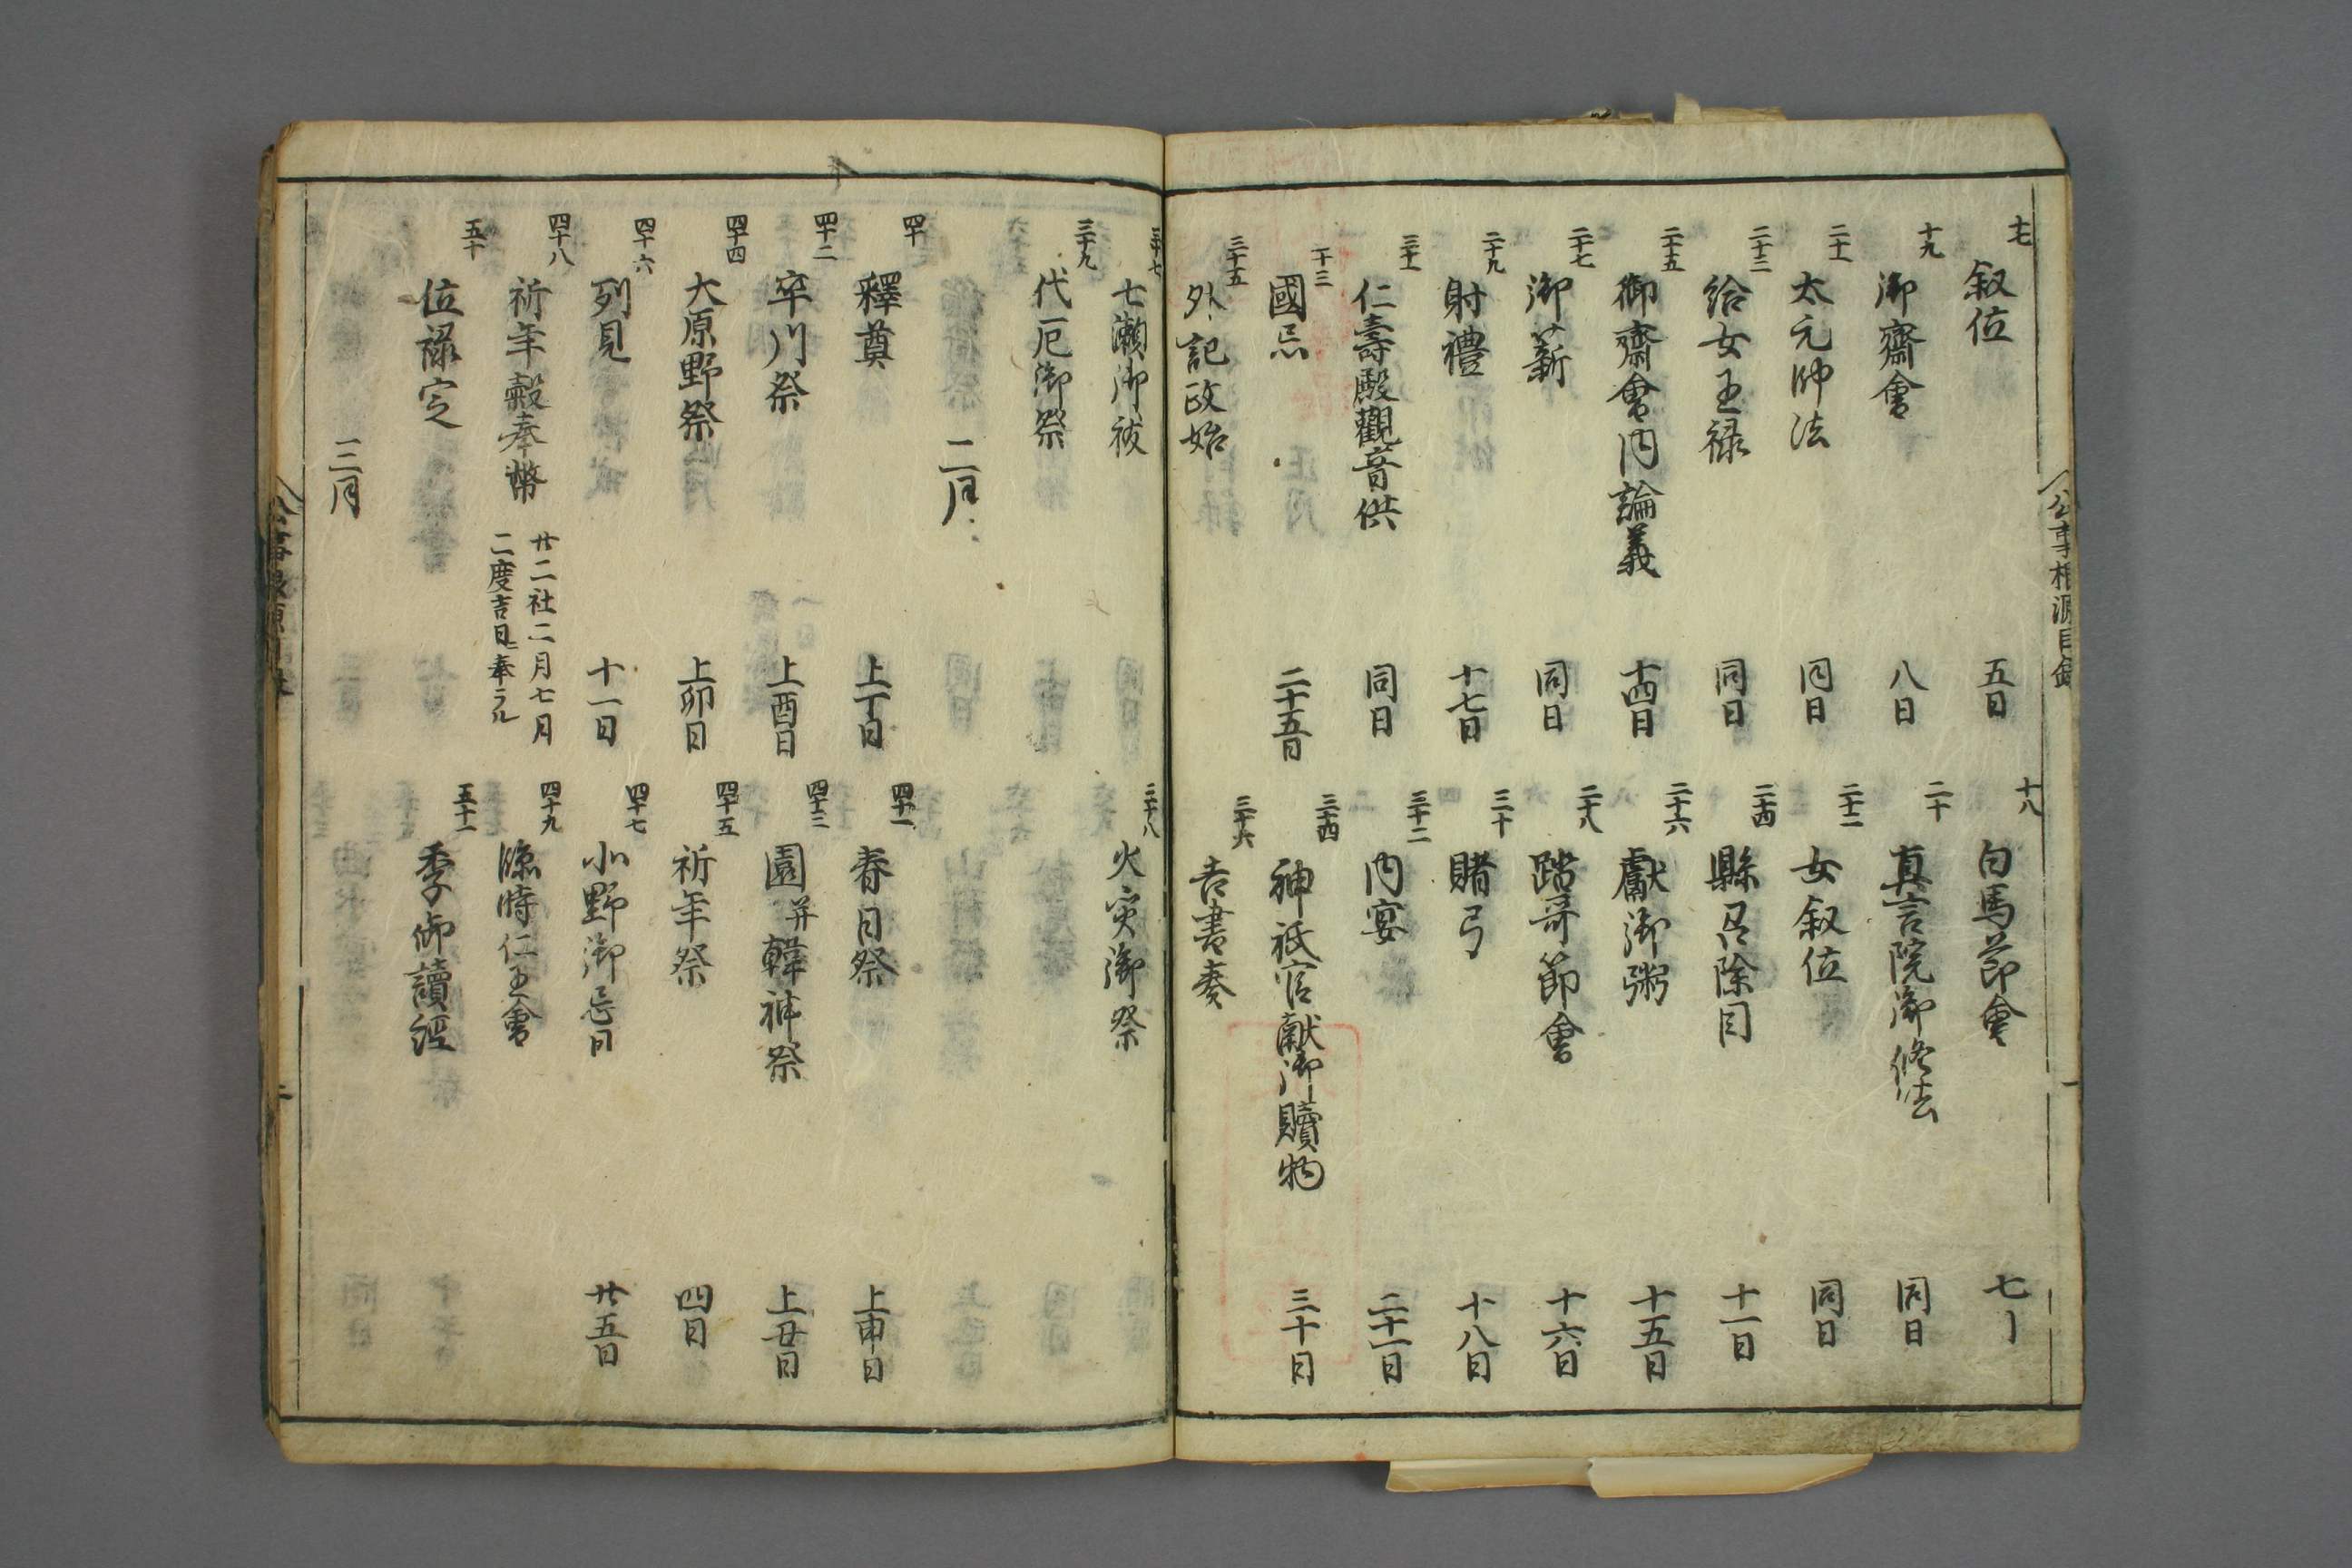 公事根源目録
十七 叙位 五日
十八 白馬節會 七日
十九 御齋會 八日
二十 真言院御修法 同日
二十一 太元帥法 同日
二十二 女叙位 同日
二十三 給女王禄 同日
二十四 縣召除目 十一日
二十五 御齋會内論義 十四日
二十六 獻御粥 十五日
二十七 御薪 同日
二十八 踏哥節會 十六日
二十九 射禮 十七日
三十 賭弓 十八日
三十一 仁壽殿觀音供 同日
三十二 内宴 二十一日
三十三 國忌 二十五日
三十四 神祇官献御贖物 三十日
三十五 外記政始
三十六 吉書奏
三十七 七瀬御祓
三十八 火災御祭
三十九 代厄御祭
二月
四十 釋奠 上丁日
四十一 春日祭 上申日
四十二 卒川祭 上酉日
四十三 園并韓神祭 上丑日
四十四 大原野祭 上卯日
四十五 祈年祭 四日
四十六 列見 十一日
四十七 小野御忌日 廿五日
四十八 祈年穀奉幣 廿二社二月七月
二度吉日奉ラル
四十九 臨時仁王會
五十 位禄定
五十一 季御讀經
三月